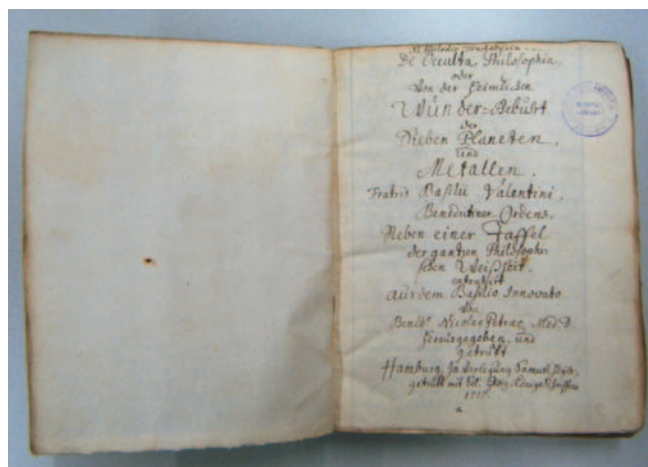 De Occulta Philosophia,
oder
Von der Heimlichen
Wunder-Gebuhrt
der
Sieben Planeten,
und
Metallen.
Fratris Basilii Valentini,
Benedictiner-Ordens.
Neben einer Taffel
der gantzen Philosophi-
schen Weißheit.
extrahirt
aus dem Basilio Innovato
von
Bened. Nicolae Petrae, Med. D.
herausgegeben, und
getruckt
Hamburg, In Verlegung Samuel
getruckt mit Königs Schrifften